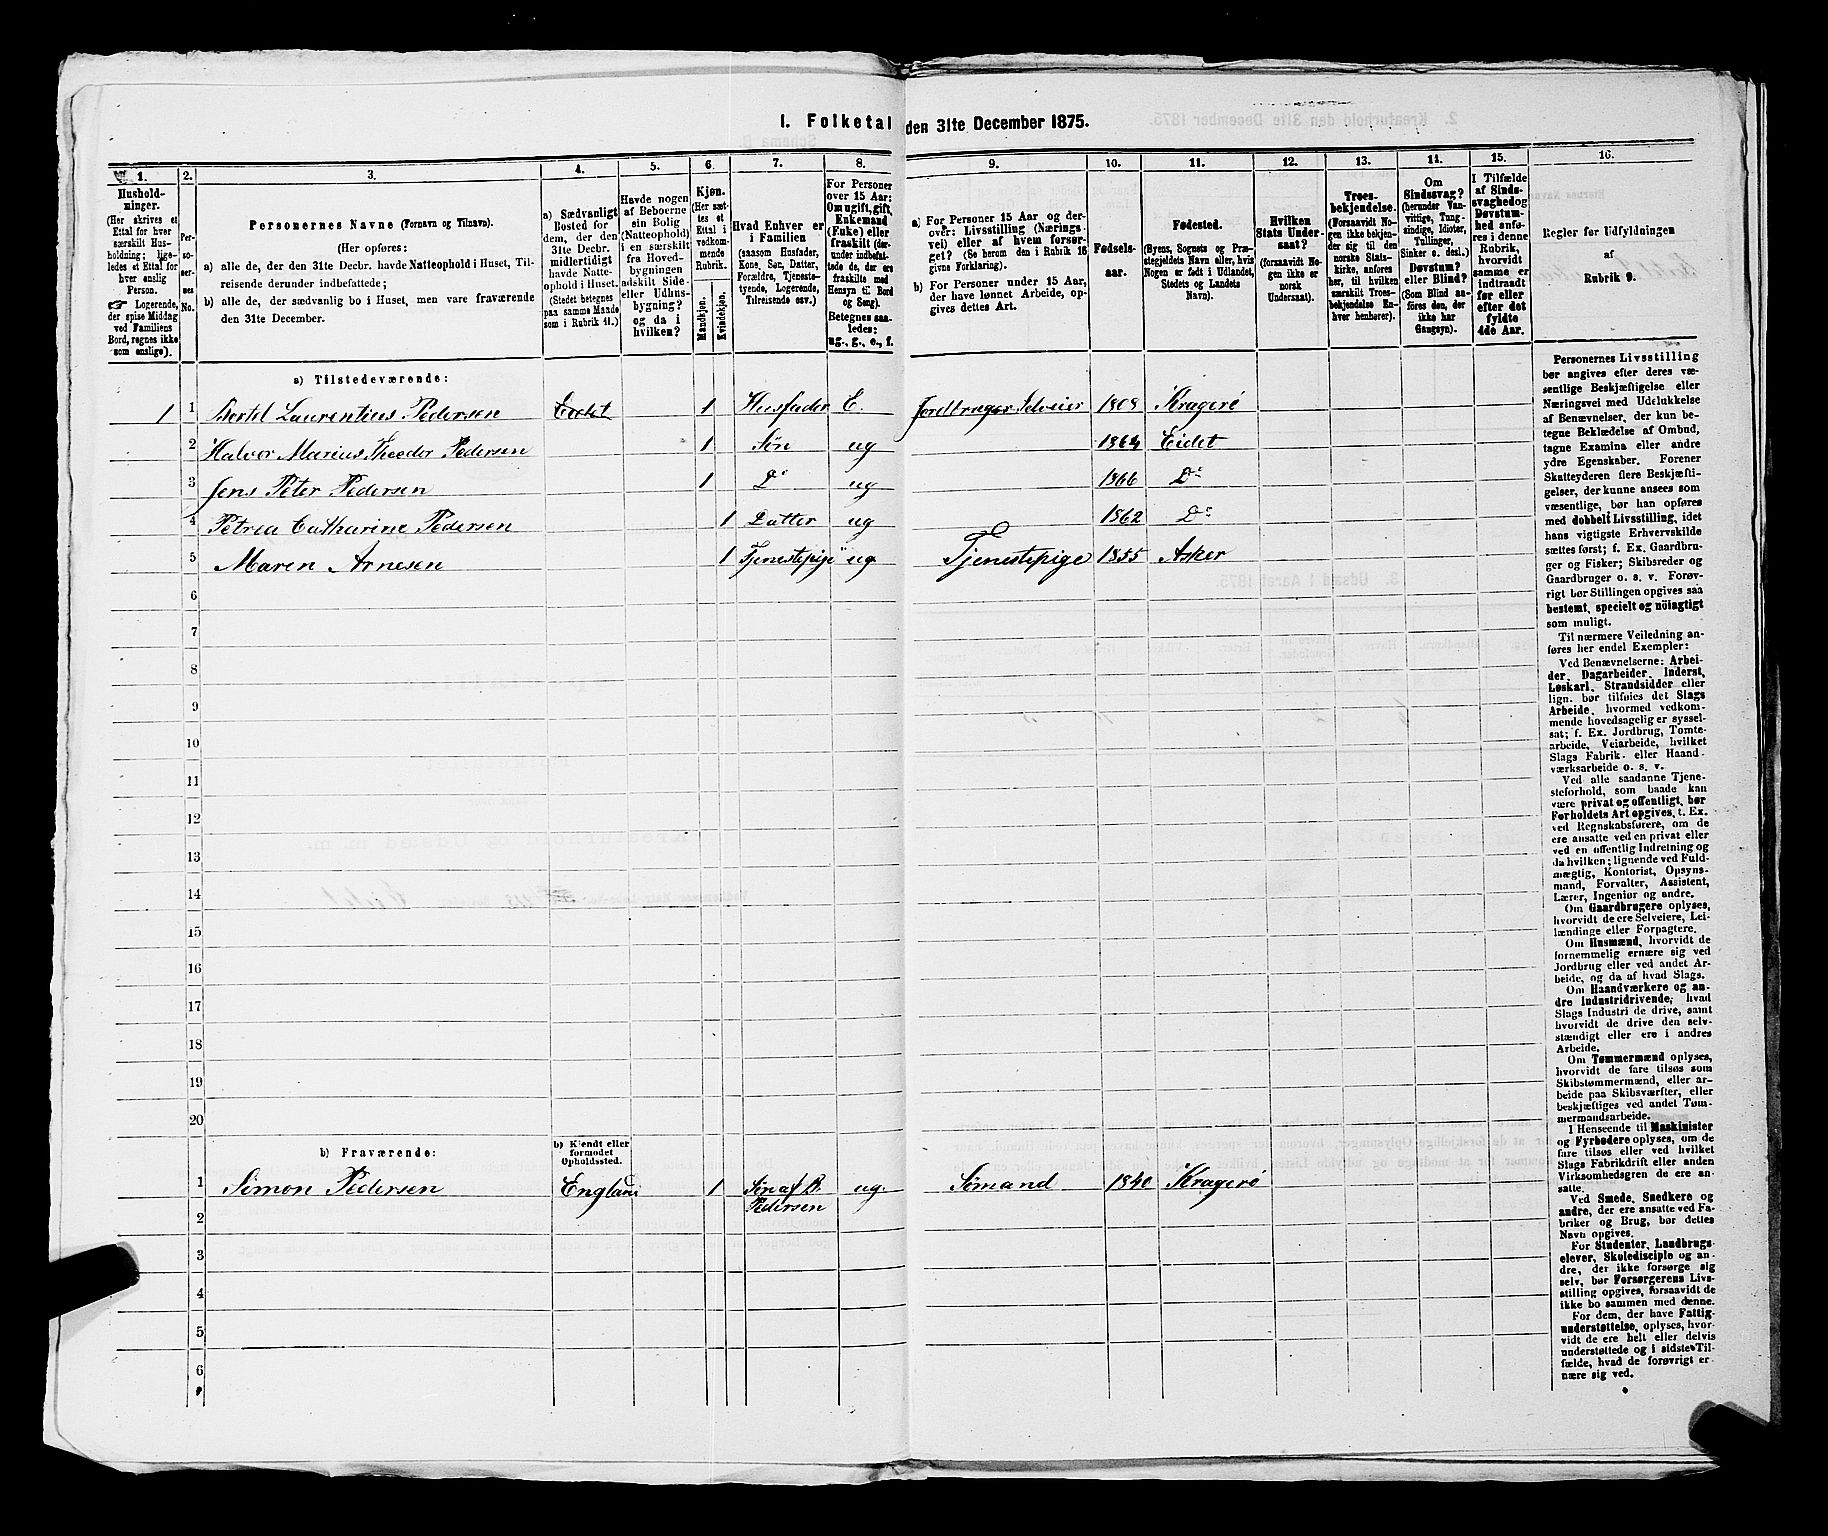 I. Folketal den 31te December 1875.
1. 2. 3. 4. 5. 6. 7. 8. 9. 10. 11. 12. 13. 14. 15. 16.
Husholdninger.
(Her skrives et
Ettal for hver
særskilt Husholdning; ligeledes
et Ettal for
hver enslig
Person.
☞ Logerende,
der spise Middag
ved Familiens
Bord, regnes ikke
som enslige).
Personernes No.
Personernes Navne (Fornavn og Tilnavn).
(Her opføres:
a) alle de, der den 31te Decbr. havde Natteophold i Huset, Tilreisende derunder indbefattede;
b) alle de, der sædvanlig bo i Huset, men vare fraværende
den 31te December.
a) Sædvanligt
Bosted for
dem, der den
31te Decbr.
midlertidigt
havde Natteophold
i Huset.
(Stedet betegnes
paa samme Maade
som i Rubrik 11.)
Havde nogen
af Beboerne
sin Bolig
(Natteophold)
i en særskilt
fra Hovedbygningen
adskilt Side-
eller Udhusbygning?
og da i
hvilken?
Kjøn.
(Her sættes
et
Ettal i
vedkommende
Rubrik.
Mandkjøn. Kvindekjøn.
Hvad Enhver er
i Familien
(saasom Husfader,
Kone, Søn, Datter,
Forældre, Tjenestetyende,
Logerende,
Tilreisende osv.)
For Personer
over 15 Aar:
Om ugift, gift,
Enkemand
(Enke) eller
fraskilt (derunder indbefattede
de, der ere
fraskilte med
Hensyn til Bord
og Seng).
Betegnes saaledes:
ug., g., e., f.
a) For Personer 15 Aar og derover: Livsstilling (Næringsvei) eller af hvem forsørget? (Se herom den i Rubrik 16
givne Forklaring).
b) For Personer under 15 Aar,
der have lønnet Arbeide, opgives dettes Art.
Fødselsaar.
Fødested.
(Byens, Sognets og Præstegjeldets Navn eller, hvis
Nogen er født i Udlandet,
Stedets og Landets
Navn).
Hvilken
Stats Undersaat?
(forsaavidt Nogen ikke er
norsk
Undersaat).
Troesbekjendelse.
(Forsaavidt Nogen ikke bekjender sig til den
norske Statskirke, anføres
her, til hvilken
særskilt Troesbekjendelse Enhver henhører).
Om
Sindssvag?
(herunder Vanvittige, Tungsindige, Idioter,
Tullinger,
Sinker o. desl.).
Døvstum?
eller Blind?
(Som Blind anføres den, der
ikke har
Gangsyn).
I Tilfælde
af Sindssvaghed og
Døvstumhed anføres i denne
Rubrik,
hvorvidt
samme er
indtraadt
før eller
efter det
fyldte
4de Aar.
Regler før Udfyldningen
af
Rubrik 9.
a) Tilstedeværende:
1 1 Bertel Laurentius Pedersen Eidet 1 Husfader E. Jordbruger Selveier 1808 Kragerø
2 Halvor Marius Theodor Pedersen 1 Søn ug 1864 Eidet
3 Jens Peter Pedersen 1 Do ug 1866 Do
4 Petrea Catharine Pedersen 1 Datter ug 1862 Do
5 Maren Arnesen 1 Tjenestepige ug. Tjenestepige 1855 Asker
6
7
8
9
10
11
12
13
14
15
16
17
18
19
20
b) Fraværende:
b) Kjendt eller
formodet
Opholdssted.
1 Simon Pedersen England 1 Søn af B. Pedersen ug. Sømand 1840 Kragerø
2
3
4
5
6
Personernes Livsstilling
bør angives efter deres væsentlige Beskjæftigelse eller
Næringsvei med Udelukkelse
af Benævnelser, der kun betegne Beklædelse af Ombud,
tagne Examina eller andre
ydre Egenskaber. Forener
Skatteyderen flere Beskjæftigelser, der kunne ansees som
væsentlige, bør han opføres
med dobbelt Livsstilling, idet
hans vigtigste Erhvervskilde
sættes først; f. Ex. Gaardbruger og Fisker; Skibsreder og
Gaardbruger o. s. v. Forøvrigt bør Stillingen opgives saa
bestemt, specielt og nöiagtigt
som muligt.
Til nærmere Veiledning anføres her endel Exempler:
Ved Benævnelserne: Arbeider, Dagarbeider, Inderst,
Løskarl, Strandsidder eller
lign. bør tilføies det Slags
Arbeide, hvormed vedkommende hovedsagelig er sysselsat; f. Ex. Jordbrug, Tomtearbeide, Veiarbeide, hvilket
Slags Fabrik- eller Haandværksarbeide o. s. v.
Ved alle saadanne Tjenesteforhold, som baade kan
være privat og offentligt, bør
Forholdets Art opgives, t. Ex.
ved Regnskabsførere, om de
ere ansatte ved en privat eller
ved en offentlig Indretning og
da hvilken; lignende ved Fuldmægtig, Kontorist, Opsynsmand, Forvalter, Assistent,
Lærer, Ingeniør og andre.
Om Gaardbrugere oplyses,
hvorvidt de ere Selveiere, Leilændinge eller Forpagtere.
Om Husmænd, hvorvidt de
fornemmelig ernære sig ved
Jordbrug eller ved andet Arbeide, og da af hvad Slags.
Om Haandværkere og andre Industridrivende, hvad
Slags Industri de drive, samt
hvorvidt de drive den selvstændigt eller ere i andres
Arbeide.
Om Tømmermænd oplyses,
hvorvidt de fare tilsøs som
Skibstømmermænd, eller arbeide paa Skibsværfter, eller
beskjæftiges ved andet Tømmermandsarbeide.
I Henseende til Maskinister
og Fyrbødere oplyses, om de
fare tilsøs eller ved hvilket
Slags Fabrikdrift eller anden
Virksomhedsgren de ere ansatte.
Ved Smede, Snedkere og
andre, der ere ansatte ved Fabriker og Brug, bør dettes
Navn opgives.
For Studenter, Landbrugselever, Skoledisciple og andre, der ikke forsørge sig
selv, bør Forsørgerens Livsstilling opgives, forsaavidt de
ikke bo sammen med denne.
For dem, der have Fattigunderstøttelse, oplyses, hvorvidt de ere helt eller delvis
understøttede og i sidste Tilfælde, hvad de forøvrigt ernære sig ved.